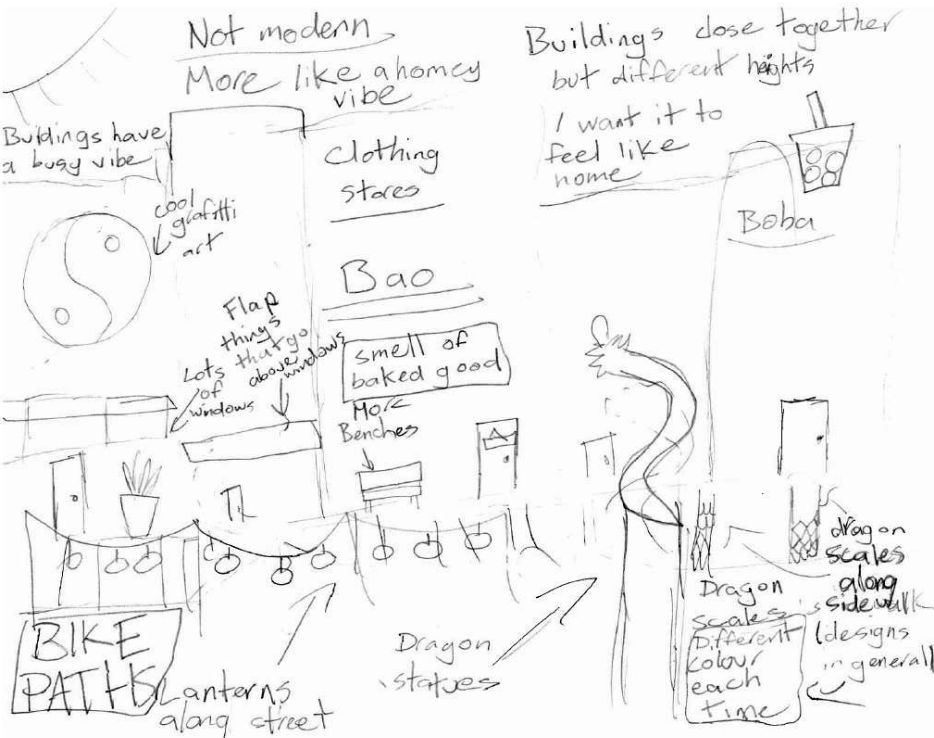 Not modern
More like a homey
vibe
Buildings close together
but different heights
I want it to
feel like
home
Buildings have
a busy vibe
Clothing
stores
cool
grafitti
art
Boba
Bao
Flap
things
that go
above
windows
Lots
of
windows
smell of
baked good
More
Benches
dragon
scales
along
sidewalk
(designs
in general)
Dragon
scales
Different
colour
each
time
BIKE
PATHS
Lanterns
along street
Dragon
statues